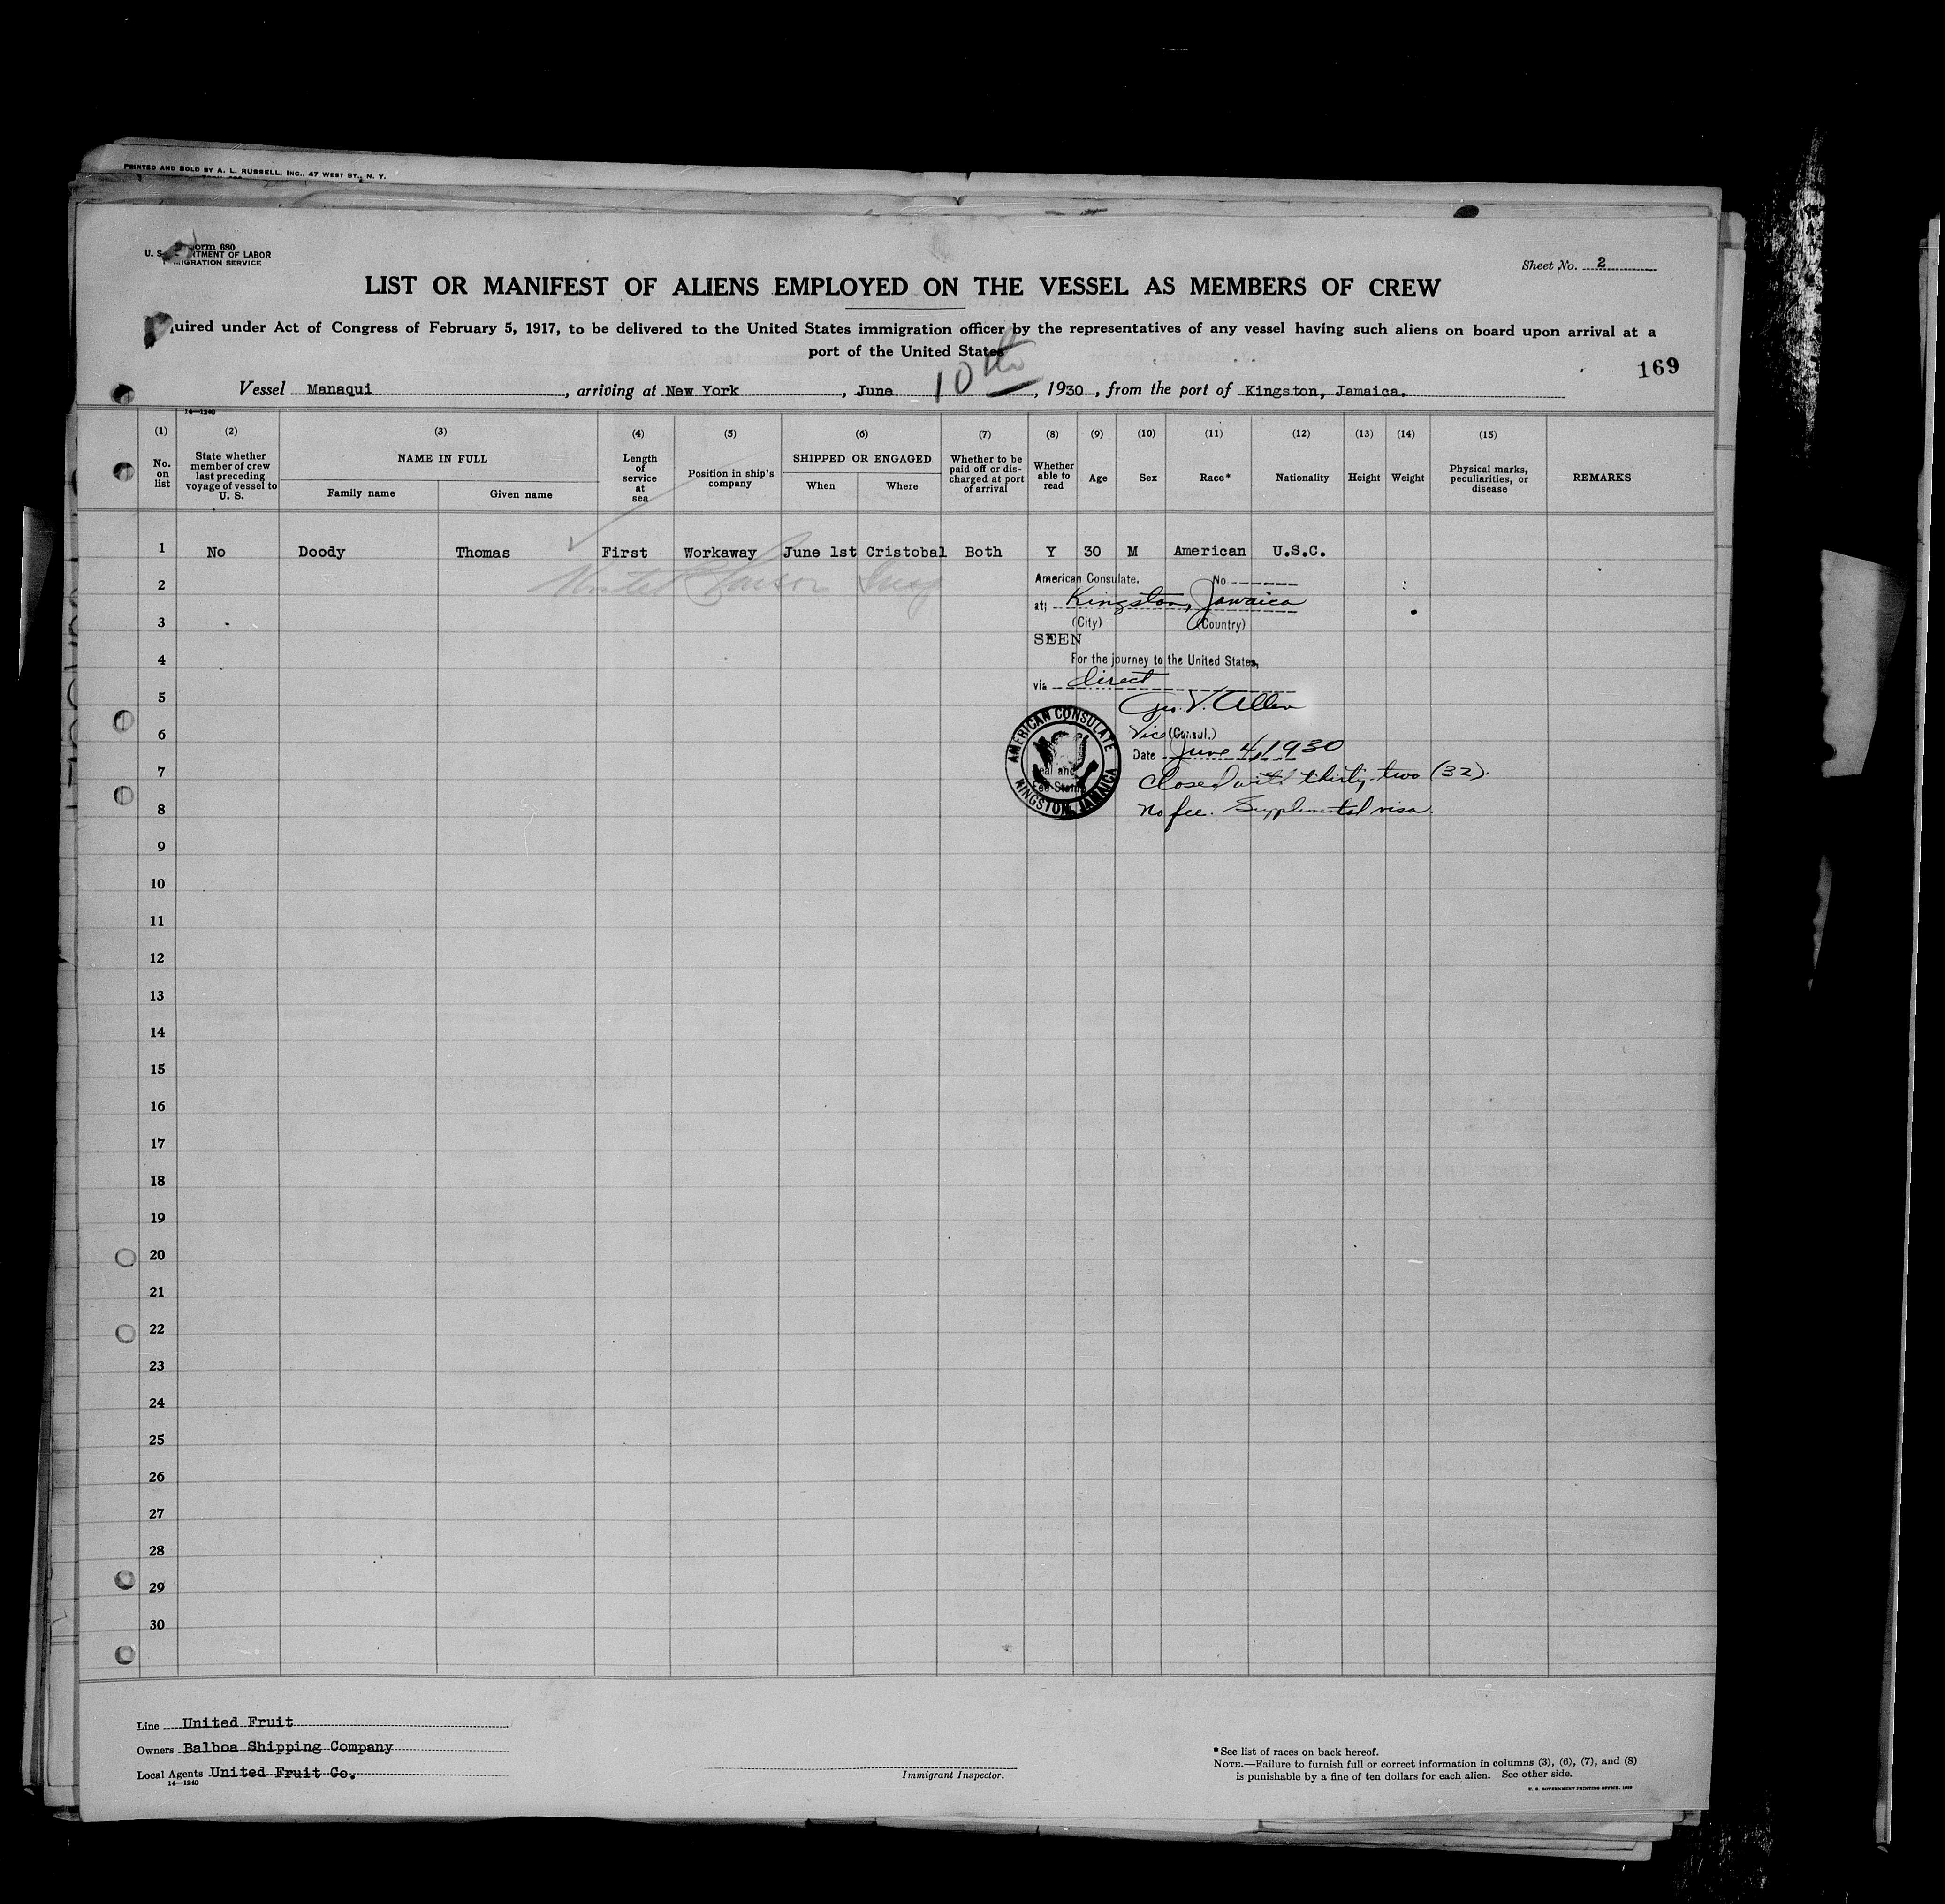 PRINTED AND SOLD BY A. L. RUSSELL, INC., 47 WEST ST., N. Y.
Form 680
U. S. DEPARTMENT OF LABOR
IMMIGRATION SERVICE
Sheet No. 2
LIST OR MANIFEST OF ALIENS EMPLOYED ON THE VESSEL AS MEMBERS OF CREW
uired under Act of Congress of February 5, 1917, to be delivered to the United States immigration officer by the representatives of any vessel having such aliens on board upon arrival at a
port of the United States
169
Vessel Manaqui, arriving at New York, June 10th, 1930, from the port of Kingston, Jamaica.
14—1240
(1) (2) (3) (4) (5) (6) (7) (8) (9) (10) (11) (12) (13) (14) (15)
No. on list
State whether member of crew last preceding voyage of vessel to U. S.
NAME IN FULL
Family name
Given name
Length of service at sea
Position in ship's company
SHIPPED OR ENGAGED
When
Where
Whether to be paid off or discharged at port of arrival
Whether able to read
Age
Sex
Race*
Nationality
Height
Weight
Physical marks, peculiarities, or disease
REMARKS
1 No Doody Thomas First Workaway June 1st Cristobal Both Y 30 M American U.S.C.
American Consulate. No
2
at; Kingston, Jamaica
3
(City) (Country)
SEEN
4
For the journey to the United States,
via direct
5
Geo. V. Allen
6
Vice (Consul.)
Date June 4, 1930
AMERICAN CONSULATE
KINGSTON, JAMAICA
7
Closed with thirty two (32).
8
No fee. Supplemental visa.
9
10
11
12
13
14
15
16
17
18
19
20
21
22
23
24
25
26
27
28
29
30
Line United Fruit
Owners Balboa Shipping Company
Local Agents United Fruit Co.
14—1240
Immigrant Inspector.
*See list of races on back hereof.
NOTE.—Failure to furnish full or correct information in columns (3), (6), (7), and (8)
is punishable by a fine of ten dollars for each alien. See other side.